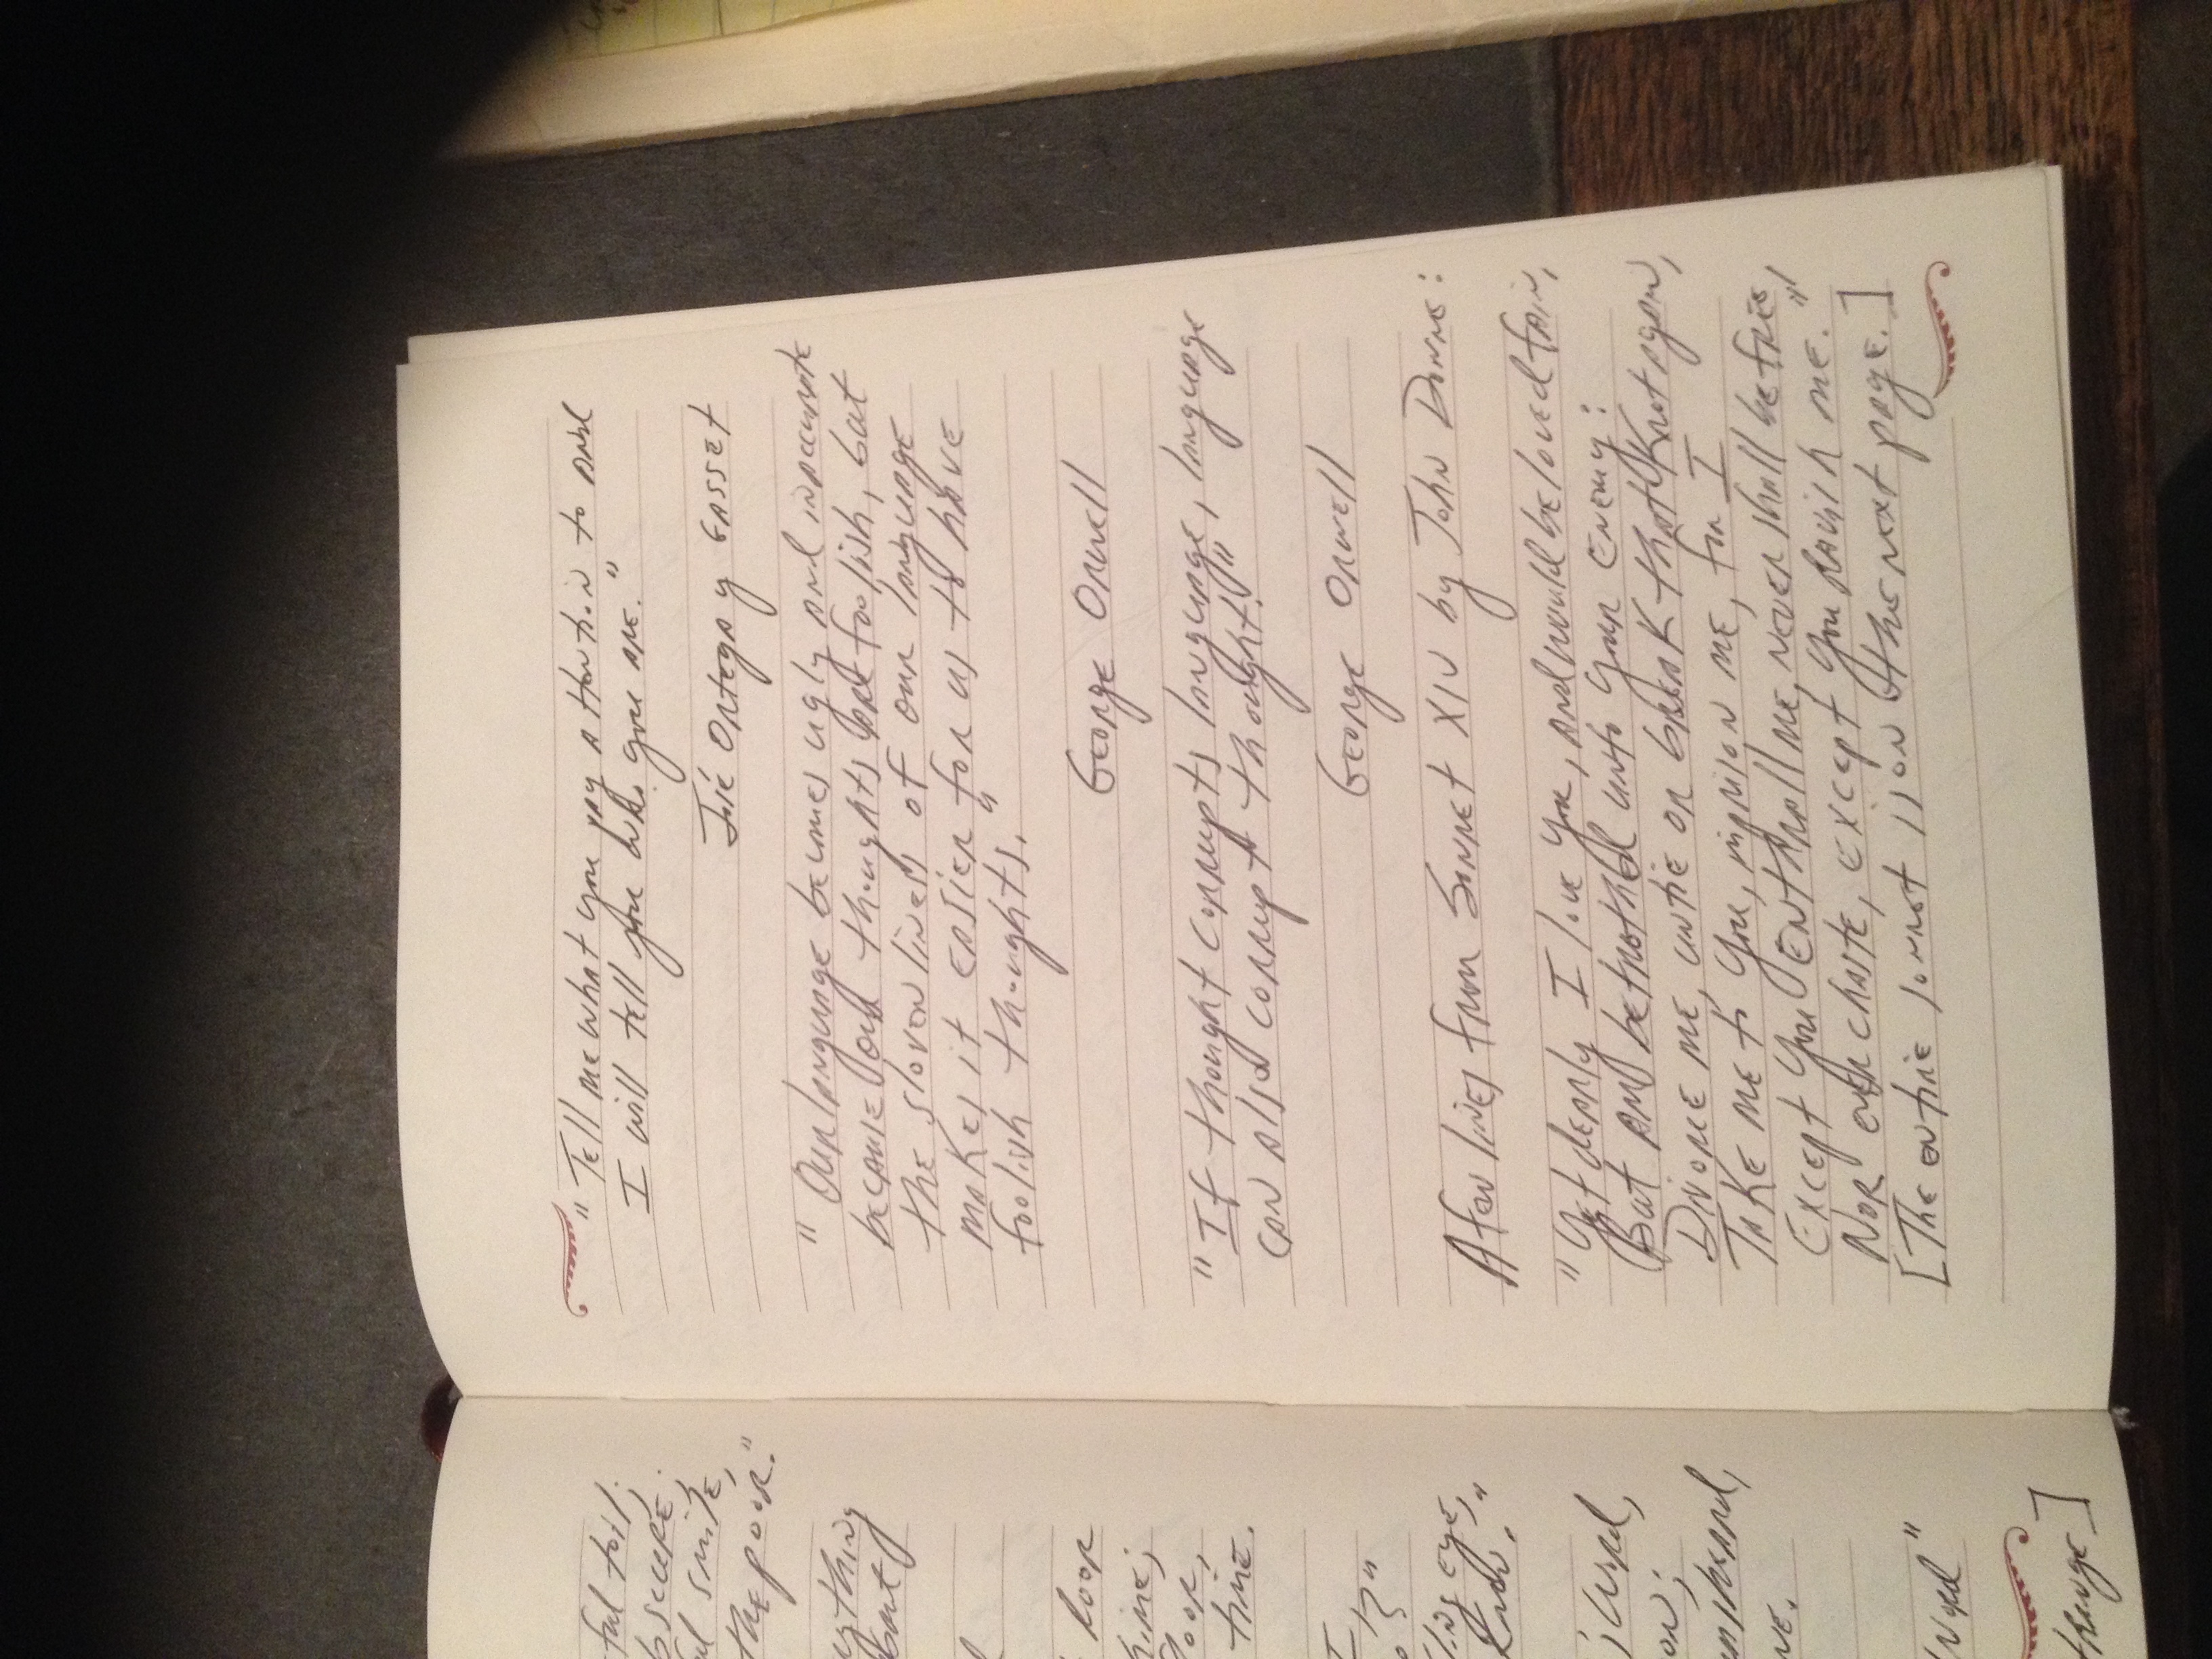 "Tell me what you pay attention to and
I will tell you who you are."
José Ortega y Gasset
"Our language becomes ugly and inaccurate
because our thoughts are foolish, but
the slovenliness of our language
makes it easier for us to have
foolish thoughts."
George Orwell
"If thought corrupts language, language
can also corrupt thought."
George Orwell
A few lines from Sonnet XIV by John Donne:
"Yet dearly I love you, and would be loved fain,
But am betrothed unto your enemy:
Divorce me, untie or break that knot again,
Take me to you, imprison me, for I
Except you enthrall me, never shall be free,
Nor ever chaste, except you ravish me."
[The entire sonnet is on the next page.]
ful toil.
obscure;
smile,
the poor."
door
thine;
door,
thine.
eye,
know."